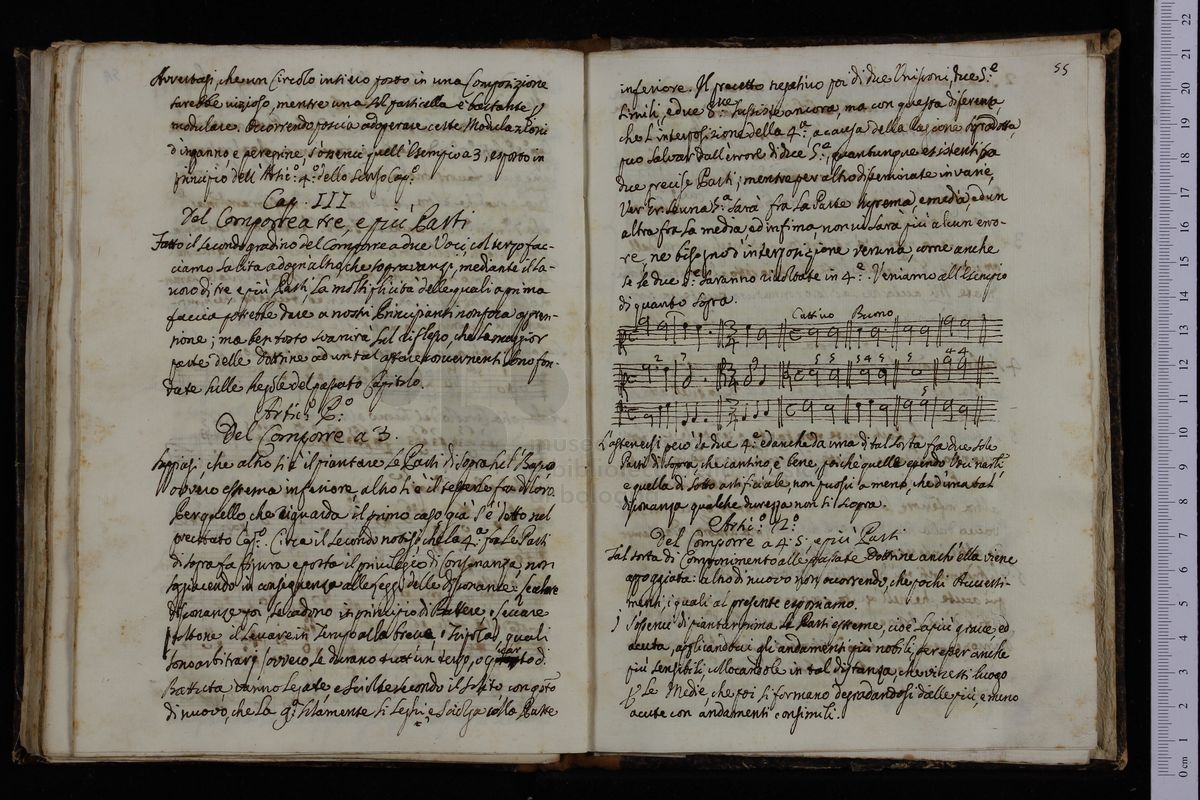 Avvertasi, che un Circolo intiero posto in una Composizione
sarebbe vizioso, mentre una sol particella è bastante p
modulare. Occorrendo poscia adoperare certe Modulazioni
d'inganno e peregrine, s'osservi quell'Esempio a 3, esposto in
principio dell'Artic:º 4º dello stesso Cap:º
Cap. III
Del Comporre a tre, e più Parti
Fatto il secondo gradino del Comporre a due Voci, col terzo fac-
ciamo salita ad ogn'altro, che sopravanzi, mediante il la-
voro di tre, e più Parti, la moltiplicità delle quali a prima
faccia potrebbe dare a nostri Principianti non poca appren-
sione; ma ben tosto svanirà sul riflesso, che la maggior
parte delle dottrine ad un tal affare concernenti sono fon-
date sulle Regole del passato Capitolo.
Artic:º P:º
Del Comporre a 3.
Sappiasi che altro si è il piantare le Parti di sopra sul Basso
ovvero estrema inferiore, altro si è il tesserle fra di loro.
Per quello, che riguarda il primo caso già s'è detto nel
precitato Cap:º Circa il secondo noto si che la 4ª fra le Parti
di sopra fa figura e porta il privilegio di Consonanza, non
soggiacendo in conseguenza alle leggi delle dissonanze
dissonanze poi se cadono in principio di Battere, e Levare
il Levare in Tempo alla breve, e Tripla, quali
sono arbitrarj
Battuta vanno legate e sciolte secondo il solito, con q.to
di nuovo, che la 9ª solamente si leghi e sciolga colla Parte
55
inferiore. Il precetto negativo poi di due Unisoni, due 5:e
simili, e due 8:ve sussiste ancora, ma con questa diferenza,
che l'interposizione della 4ª, a causa della ragione sopradotta,
può salvar dall'errore di due 5:e, quantunque esistenti fra
due precise Parti; mentre per altro disseminate in varie,
ver. gr. se una 5ª sarà fra la Parte suprema, e media ed un
altra fra la media ed infima, non vi sarà più alcun erro-
re, ne bisogno d'interposizione veruna, come anche
se le due 5:e saranno rivoltate in 4:e Veniamo all'Esempio
di quanto sopra.
Cattivo Buono
2 7 5 5 5 4 5 5 4 4
5
L'astenersi però da due 4:e ed anche da una di tal sorta fra due sole
Parti di sopra, che cantino, è bene, poichè quelle
e quella di sotto artificiale, non puossi a meno, che d'una tal
dissonanza qualche durezza non si scopra.
Artic:º 2:º
Del Comporre a 4: 5: e più Parti
Tal sorta di Componimento alle passate Dottrine anch'ella viene
appoggiata: altro di nuovo non occorrendo, che pochi Avverti-
menti, i quali al presente esponiamo.
) S'osservi di piantar prima le Parti estreme, cioè la più grave ed
acuta, appliandovi gli andamenti più nobili, per esser anche
più sensibili, collocandole in tal distanza, che vi resti luogo
p le Medie, che poi si formano degradandosi dalle più, e meno
acute con andamenti consimili.